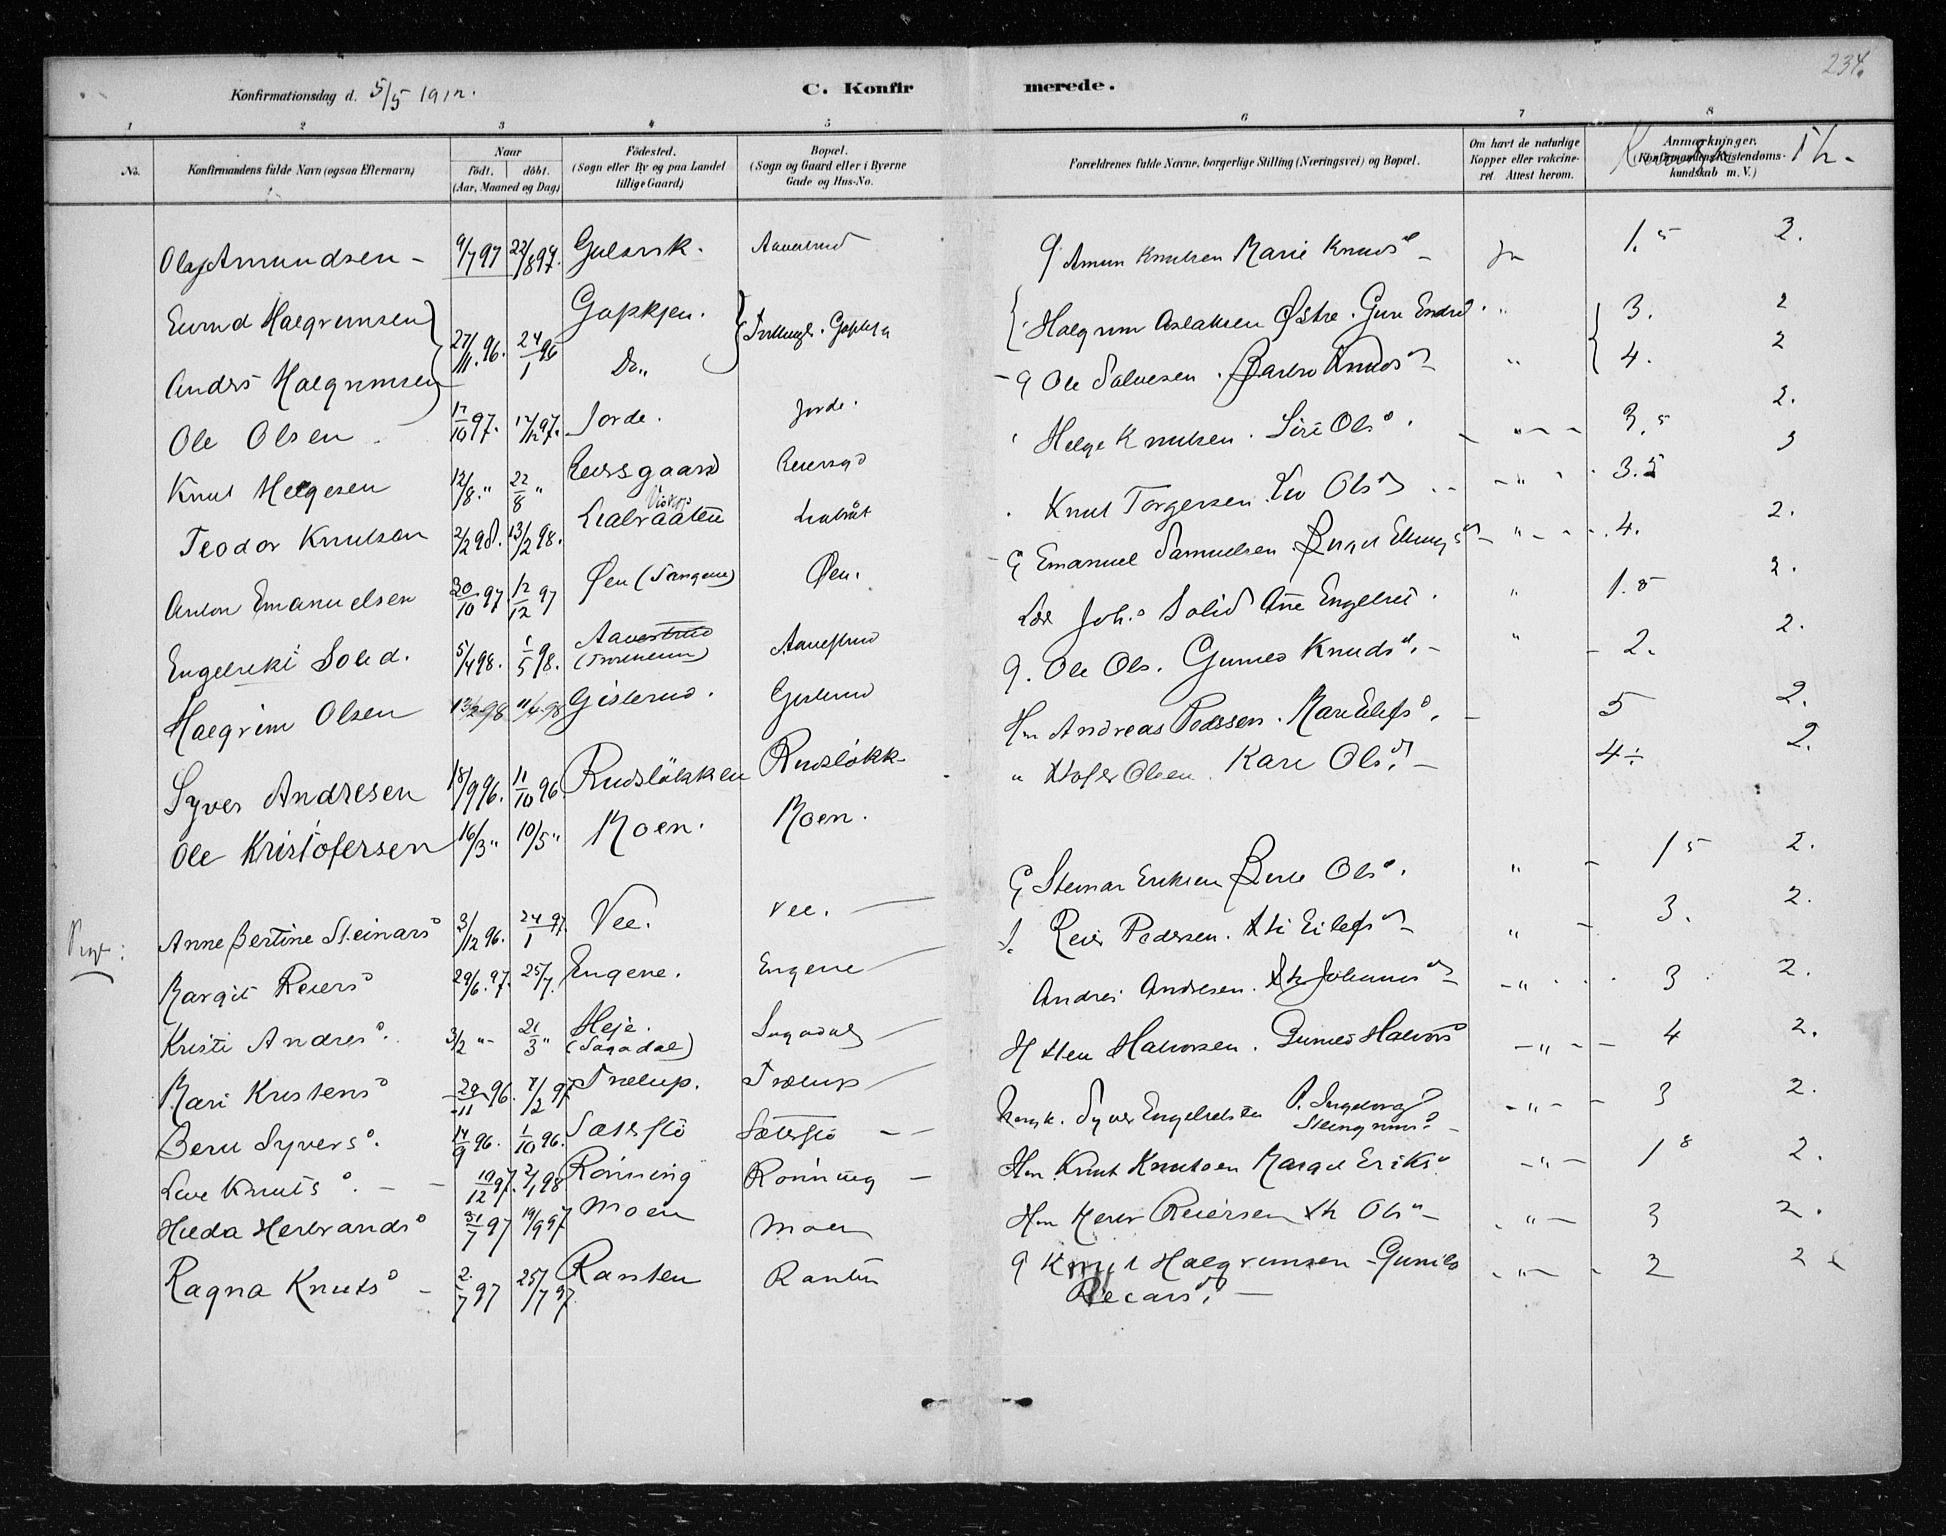 234.
Konfirmationsdag d. 5/5 1912.
C. Konfirmerede.
1 2 3 4 5 6 7 8
No.
Konfirmandens fulde Navn (ogsaa Efternavn)
Naar
födt. döbt.
(Aar, Maaned og Dag)
Födested.
(Sogn eller By og paa Landet
tillige Gaard)
Bopæl.
(Sogn og Gaard eller i Byerne
Gade og Hus-No.
Forældrenes fulde Navne, borgerlige Stilling (Næringsvei) og Bopæl.
Om havt de naturlige
Kopper eller vakcine-
ret. Attest herom.
Anmærkninger.
(Konfirmandens Kristendoms-
kundskab m. V.)
Olaf Amundsen - 9/7 97 22/8 97. Gulsvik. Aavestrud G Amun Knutsen Marie Knudsd - Ja 1.5 2.
Eivind Halgrimsen 27/11.96. 24/1 96 Gapkjen. Halgrim Aslaksen Østre. Guri Endrsd. " 3. 2
Anders Halgrimsen Do " 4. 2
Ole Olsen 17/10 97. 12/12 97. Jorde. Jorde. G Ole Salvesen. Barbro Knudsd " 3.5 2.
Knut Helgesen 12/8. " 22/8 " Eiersgaard Helge Knutsen. Siri Olsd. " 3.5 3
Teodor Knutsen 2/2 98. 13/2 98. Lialraaten Knut Torgersen. Liv Olsd " 4. 2.
Anton Emanuelsen 30/10 97 12/12 97 Øen (Tangene) Øen. G Emanuel Samuelsen " 1.5 2.
Engebrekt Solid. 5/4 98. 1/5 98. Aavestrud Aavestrud Joh. Solid Ane Engebret. " 2. 2.
Halgrim Olsen 13/2 98 11/4 98 Gislerud. Gislerud G. Ole Ols. Gunild Knudsd. 5 2.
Syver Andresen 18/9 96. 11/10 96 Rudsløkken Rudsløkk Hm Andreas Pedersen. Mari Eilefsd. 4÷ 2.
Ole Kristofersen 16/3 " 10/5 " Moen. Moen. " Kristofer Olsen. Kari Olsd.
Piger:
Anne Bertine Steinarsd 3/12 96. 24/1 97. Vee. Vee. G Steinar Eriksen Berte Olsd. " 1.5 2.
Margit Reiersd 29/6.97. 25/7. Engene. Engene Reier Pedersen. Kristi Eilefsd " 3. 2.
Kristi Andresd. 3/2 " 21/3 " Heje. (Sagadal) Sagadal Andres Andresen. Kr Johannesd " 3 2.
Mari Kristensd 29/11 96. 7/2 97 Trælup. Trælup Halvorsen. Gunild Halvorsd " 4 2.
Beru Syversd. 14/9 96. 1/10 96. Sæterslø Sæterslø Syver Engebretsen P. Ingeborg Steingrimsd. " 3 2.
Live Knutsd. 10/12 97. 2/1 98 Rønning Rønning Hm. Knut Knutsen Margit Eriksd. " 1.8 2.
Hilda Herbrandsd 31/7 97 19/9 97 Moen Moen Hm Herbr Reiersen Kr Olsd " 3 2.
Ragna Knutsd 2/7 97 25/7 97 Ranten Ranten G Knut Halgrimsen - Gunild
Recarsd. " 2 2